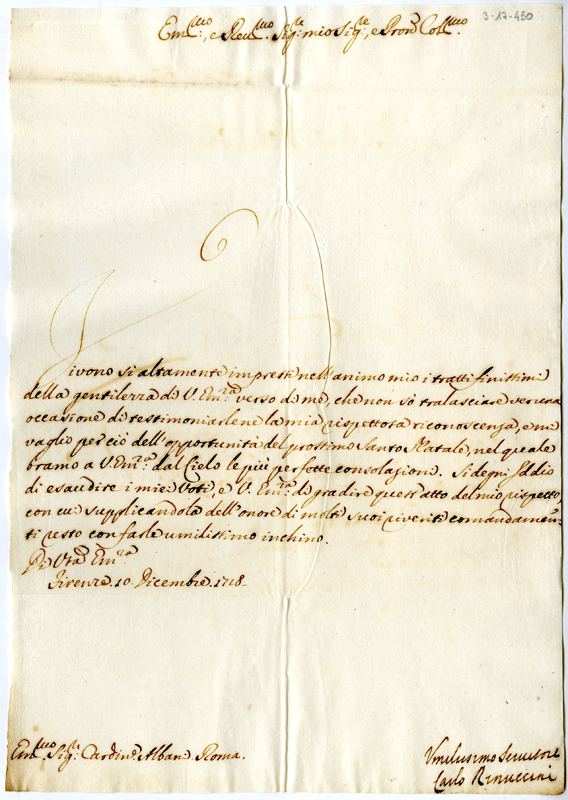 3-17-450
Em.mo, e Reu.mo Sig.re mio Sig.re, e Pron Col.mo
Vivono si altamente impressi nell'animo mio i tratti finissimi
della gentilezza di V. Em.za verso di me, che non sò tralasciare veruna
occasione di testimoniarlene la mia rispettosa riconoscenza, e mi
vaglio perciò dell'opportunità del prossimo Santo Natale, nel quale
bramo a V. Em.za dal Cielo le più perfette consolazioni. Si degni Iddio
di esaudire i miei Voti, e V. Em.za di gradire quest'atto del mio rispetto,
con cui supplicandola dell'onore di molti suoi riveriti comandamen-
ti resto con farle umilissimo inchino.
Di Vra Em.za
Firenze 10 Dicembre 1718
Em.mo Sig.re Cardin. Albani Roma.
Vmilissimo Seruitore
Carlo Rinuccini